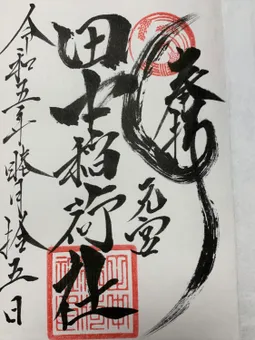 奉拝
元宮
田中稲荷社
令和五年睦月拾五日